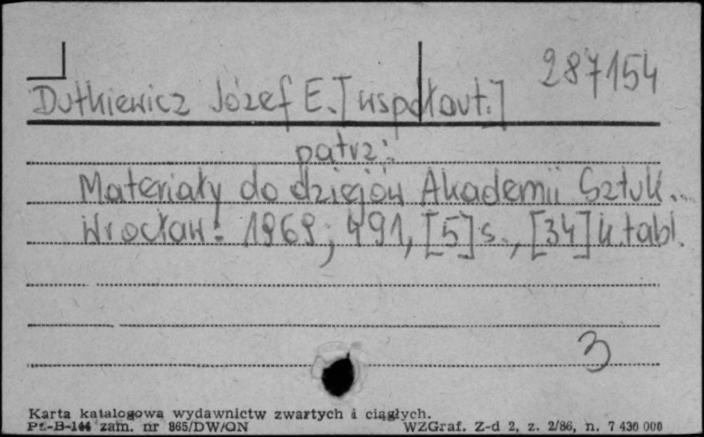 287154
Dutkiewicz Józef E. [współaut.]
patrz:
Materiały do dziejów Akademii Sztuk...
Wrocław: 1969, 491, [5] s., [34] k. tabl.
3
Karta katalogowa wydawnictw zwartych i ciągłych.
Pt.-B-144 zam. nr 865/DW/ON WZGraf. Z-d 2, z. 2/86, n. 7 430 000